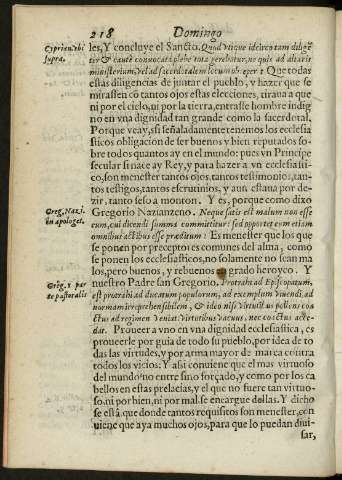 218 Domingo
Cyprien. vbi
supra.
les, Y concluye el Sancto. Quod vtique idcirco tam diligẽ
ter & cautè convocati plebe tota gerebatur, ne quis ad altaris
ministerium, vel ad sacerdotalem locum
Que todas
estas diligencias de juntar el pueblo, y hazer que se
mirassen cõ tantos ojos estas elecciones, tiraua a que
ni por el cielo, ni por la tierra, entrasse hombre indig
no en vna dignidad tan grande como la sacerdotal.
Porque vea y, si señaladamente tenemos los ecclesia
sticos obligacion de ser buenos y bien reputados so-
bre todos quantos ay en el mundo: pues vn Principe
secular si nace ay Rey, y para hazer a vn ecclesiasti-
co, son menester tantos ojos, tantos testimonios, tan-
tos testigos, tantos escrutinios, y aun estaua por de-
zir, tanto seso a monton. Y es, porque como dixo
Greg. Nazi.
in apologet.
Gregorio Nazianzeno. Neque satis est malum non esse
eum, cui dicendi summa committitur: sed oportet eum etiam
omnibus actibus esse præditum: Es menester que los que
se ponen por preceptores comunes del alma, como
se ponen los ecclesiasticos, no solamente no sean ma
los, pero buenos, y rebuenos en grado heroyco. Y
Greg. 1. par
te pastoralis
nuestro Padre san Gregorio. Protrahi ad Episcopatum,
est protrahi ad ducatum populorum, ad exemplum viuendi, ad
normam irreprehensibilem, & ideo nisi virtutibus pollens coa
ctus ad regimen veniat: virtutibus vacuus, nec coactus acce-
dat. Proueer a vno en vna dignidad ecclesiastica, es
proueerle por guia de todo su pueblo, por idea de to
das las virtudes, y por arma mayor de marca contra
todos los vicios: Y assi conuiene que el mas virtuoso
del mundo no entre sino forçado, y como por los ca
bellos en estas prelacias, y el que no fuere tan virtuo-
so, ni por bien, ni por mal se encargue dellas. Y dicho
se està que donde tantos requisitos son menester, con
uiene que aya muchos ojos, para que lo puedan diui-
sar,